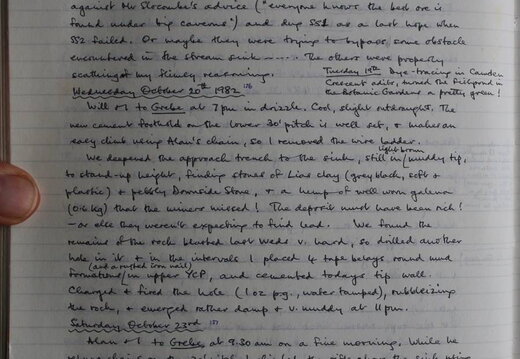 against Mr Slocombe's advice ("everyone knows the best ore is
found under big caverns") and dug SS1 as a last hope when
SS2 failed. Or maybe they were trying to bypass some obstacle
encountered in the stream sink ..... The others were properly
scathing of my flimsy reasoning.
Tuesday 19th Dye-tracing in Camden
Crescent adits, turned the fishpond in
the Botanic Gardens a pretty green!
Wednesday October 20th 1982
Will + I to Grebe at 7 pm in drizzle. Cool, slight outdraught. The
new cement foothold on the lower 30' pitch is well set, + makes an
easy climb using Alan's chain, so I removed the wire ladder.
We deepened the approach trench to the sink, still in light brown muddy tip,
to stand-up height, finding stones of Lias clay (grey black, soft &
plastic) + pebbly Downside Stone, + a lump of well worn galena
(0.6 kg) that the miners missed! The deposit must have been rich!
– or else they weren't expecting to find lead. We found the
remains of the rock blasted last Weds v. hard, so drilled another
hole in it + in the intervals I placed 4 tape belays round mud
formations (and a rusted iron nail) in upper YCP, and cemented todays tip wall.
Charged + fired the hole (1 oz p.g., water tamped), rubbleizing
the rock, + emerged rather damp + v. muddy at 11 pm.
Saturday October 23rd
Alan + I to Grebe at 9.30 am on a fine morning. While he